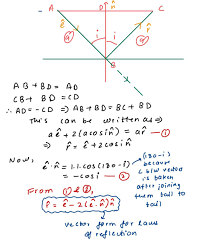 A D n̂ C
ê r̂
a i i a
B
AB + BD = AD
CB + BD = CD
∴ AD = -CD ⇒ AB + BD = BC + BD
This can be written as ⇒
aê + 2(a cos i)n̂ = ar̂ — ①
⇒ r̂ = ê + 2 cos i n̂
Now, ê·n̂ = 1·1·cos(180-i)
= -cos i — ②
(180-i)
because
vector
is taken
after joining
them tail to
tail
From ① & ②,
r̂ = ê - 2(ê·n̂)n̂
vector form for laws
of reflection